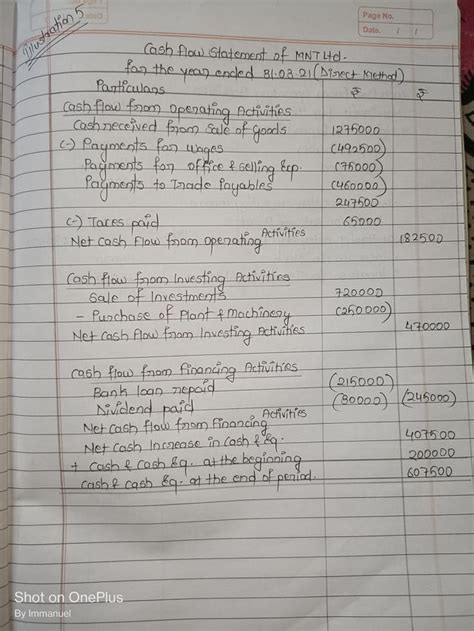 Page No.
Date. / /
Illustration 5
Cash flow Statement of MNT Ltd.
for the year ended 31.03.21 (Direct Method)
Particulars ₹ ₹
Cash flow from operating Activities
Cash received from sale of Goods 1275000
(-) Payments for wages (492500)
Payments for office & selling Exp. (75000)
Payments to Trade Payables (460000)
247500
(-) Taxes paid 65000
Net Cash Flow from operating Activities 182500
Cash flow from Investing Activities
Sale of Investments 720000
- Purchase of Plant & Machinery (250000)
Net Cash Flow from Investing Activities 470000
Cash flow from financing Activities
Bank loan repaid (215000)
Dividend paid (30000) (245000)
Net Cash flow from Financing Activities
Net Cash Increase in cash & Eq. 407500
+ Cash & cash Eq. at the beginning 200000
Cash & cash Eq. at the end of period. 607500
Shot on OnePlus
By Immanuel